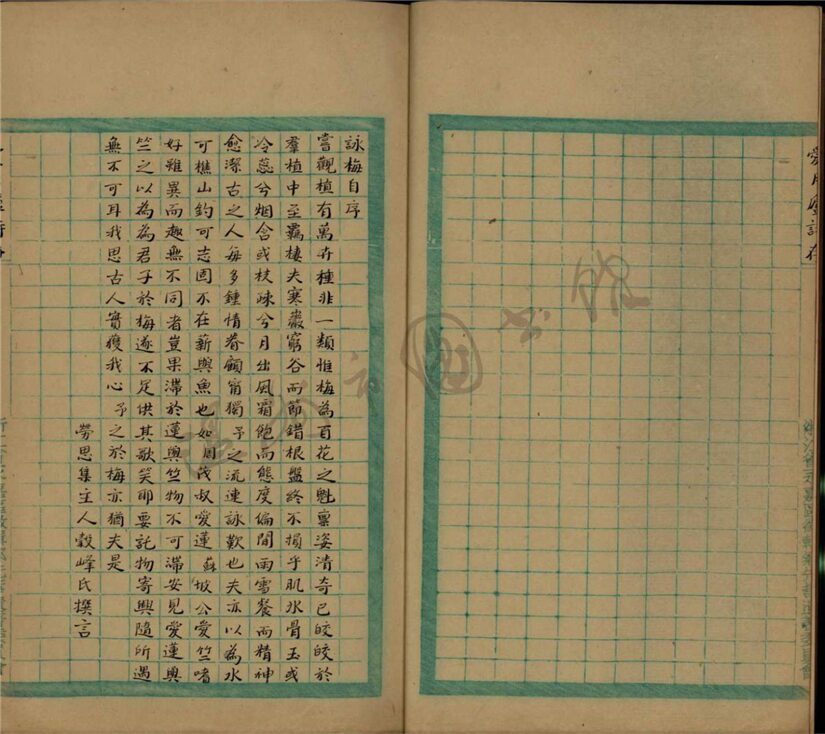 詠梅自序
嘗觀植有萬卉種非一類惟梅為百花之魁稟姿清奇已皎皎於
羣植中至羈棲夫寒巖窮谷而節錯根盤終不損乎肌氷骨玉或
冷蕊兮烟含或枝疎兮月出風霜飽而態度偏閒雨雪餐而精神
愈潔古之人每多鍾情眷顧甯獨予之流連詠歎也夫亦以為水
可樵山釣可志固不在薪與魚也如周茂叔愛蓮蘇坡公愛竺嗜
好雖異而趣無不同者豈果滯於蓮與竺物不可滯安見愛蓮與
竺之以為為君子於梅遂不足供其歌笑耶要託物寄興隨所遇
無不可耳我思古人實獲我心予之於梅亦猶夫是
勞思集主人榖峰氏撰言